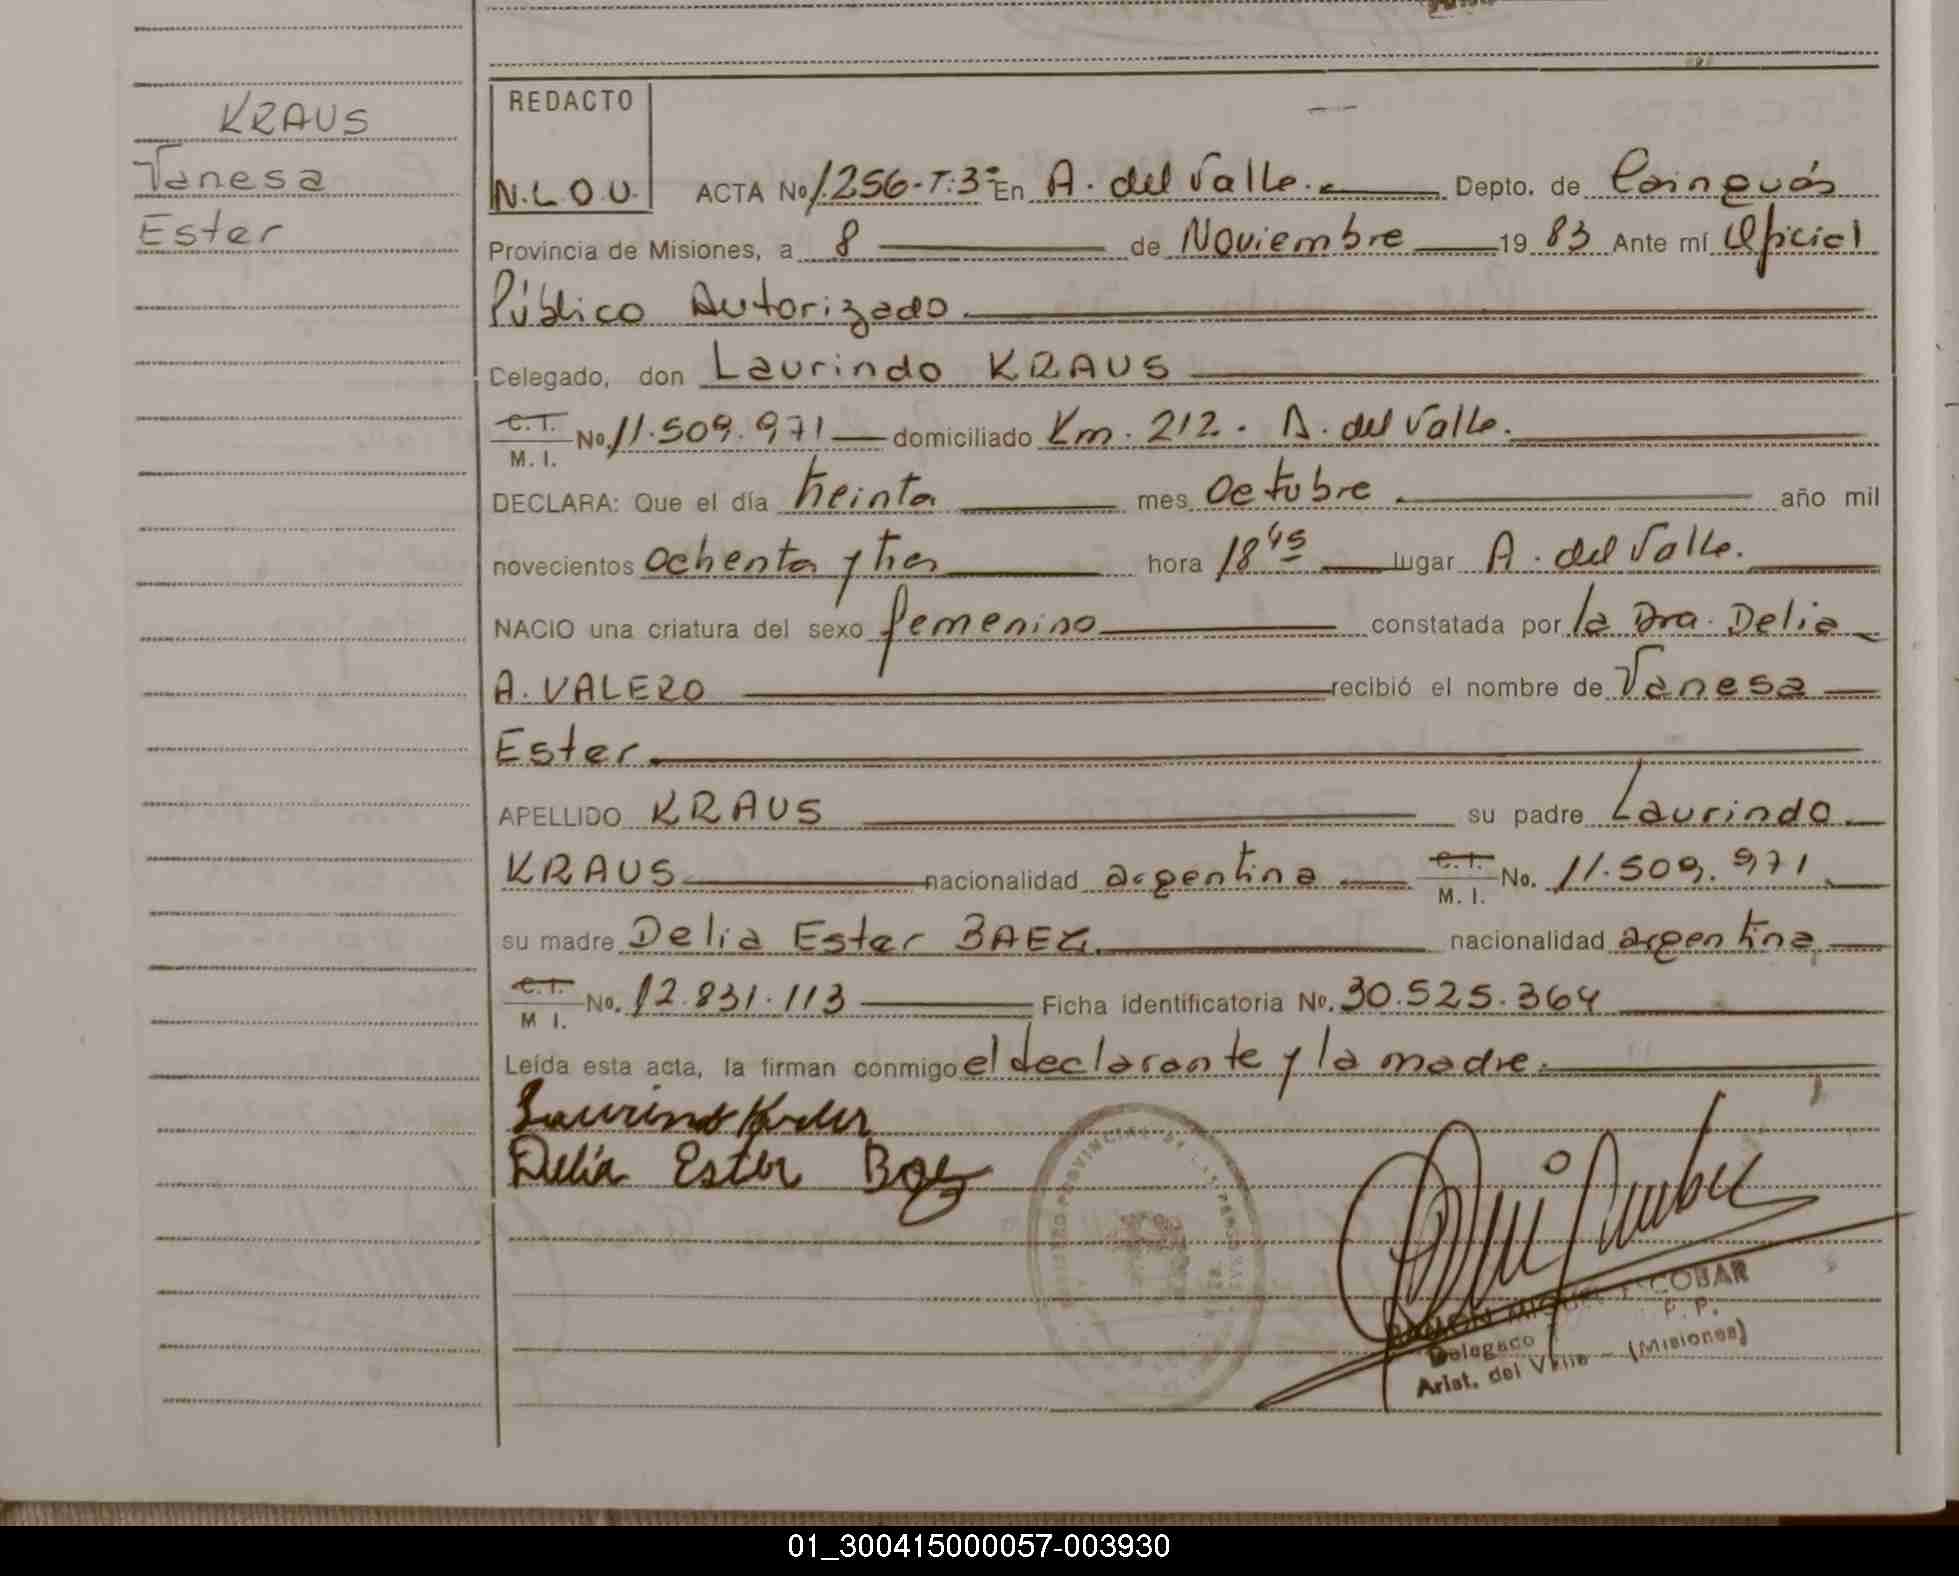 KRAUS
Vanesa
Ester
REDACTO
N.L.O.U.
ACTA No 1.256-T:3º En A. del Valle. Depto. de Cainguás
Provincia de Misiones, a 8 de Noviembre 19 83 Ante mí Oficial
Público Autorizado.
Celegado, don Laurindo KRAUS
C.I. M. I. No. 11.509.971 domiciliado Km. 212. A. del Valle.
DECLARA: Que el día treinta mes Octubre año mil
novecientos ochenta y tres hora 18 45 lugar A. del Valle.
NACIO una criatura del sexo femenino constatada por la Dra. Delia
A. VALERO recibió el nombre de Vanesa
Ester.
APELLIDO KRAUS su padre Laurindo
KRAUS nacionalidad argentina C.I. M. I. No. 11.509.971
su madre Delia Ester BAEZ nacionalidad argentina
C.I. M I. No. 12.831.113 Ficha identificatoria No. 30.525.364
Leída esta acta, la firman conmigo el declarante y la madre.
Delia Ester Baez
REGISTRO PROVINCIAL DE LAS PERSONAS
RAMON MIGUEL ESCOBAR
Delegado P. P.
Arist. del Valle - (Misiones)
01_300415000057-003930